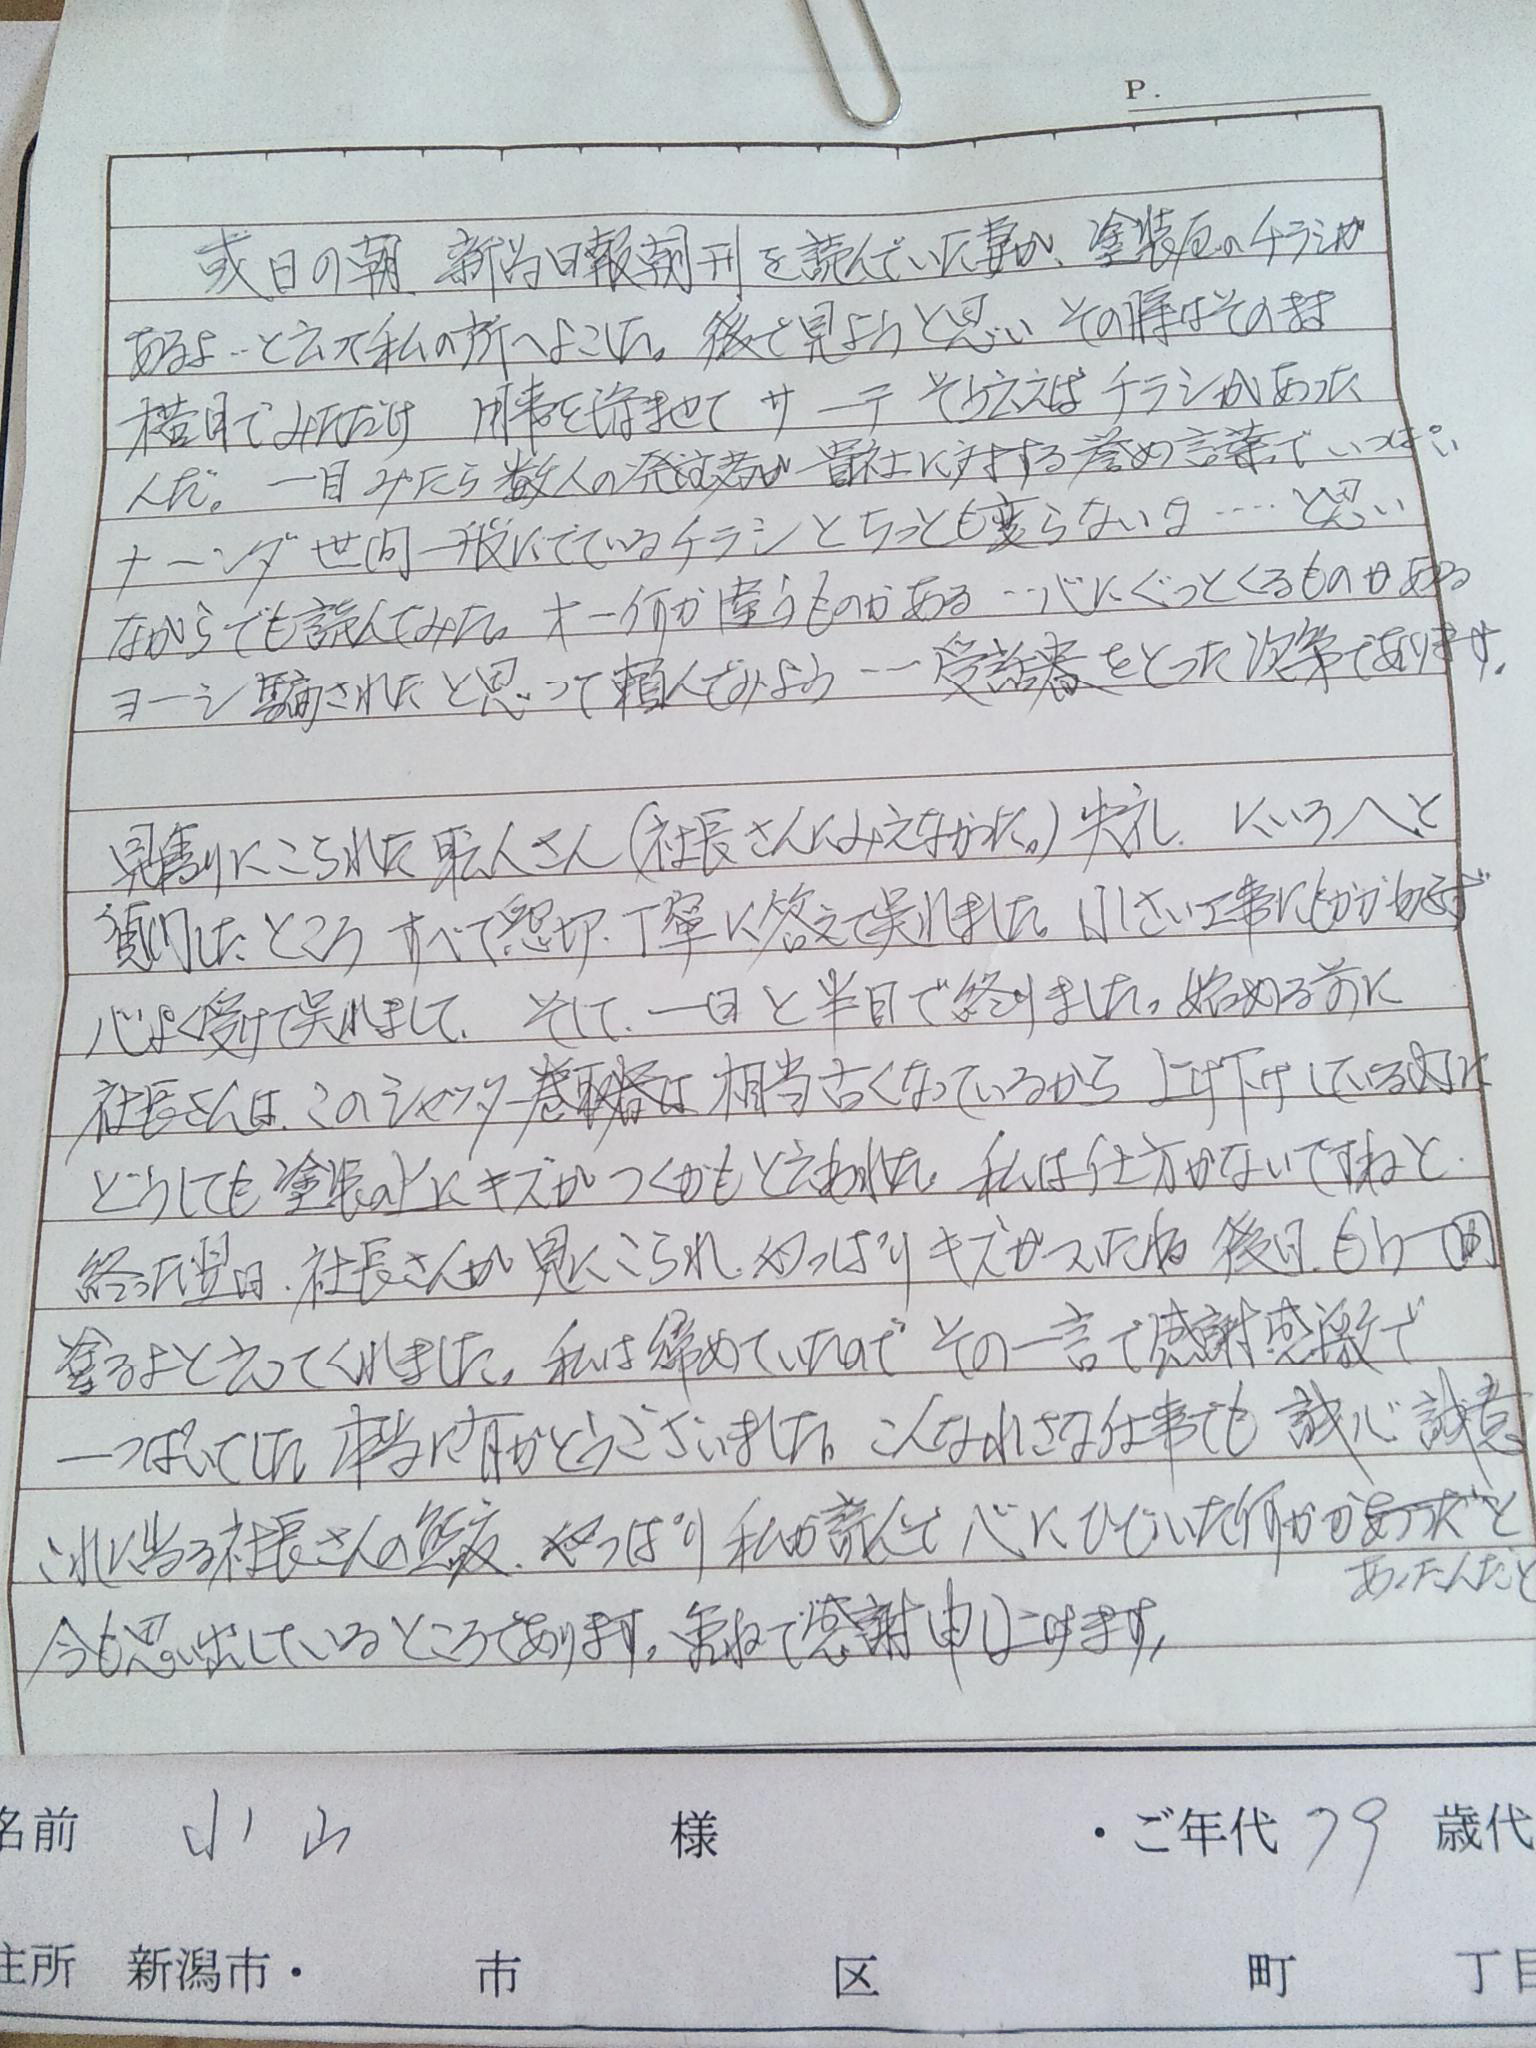 P.
或日の朝、新潟日報朝刊を読んでいた妻が、塗装店のチラシが
あるよ‥と云って私の所へよこした。後で見ようと思い その時はそのまま
横目でみただけ 用事を済ませて サーテ そう云えばチラシがあった
んだ。一目みたら数人の発注者が貴社に対する誉め言葉でいっぱい
ナーンダ世間一般にでているチラシとちっとも変らないな‥‥と思い
ながらでも読んでみた。オー何か違うものがある‥心にぐっとくるものがある
ヨーシ騙されたと思って頼んでみよう‥‥受話器をとった次第であります。
見積りにこられた職人さん(社長さんにみえなかった。)失礼、にいろへと
質問したところ すべて懇切、丁寧に答えて呉れました。小さい工事にもかかわらず
心よく受けて呉れまして、そして、一日と半日で終りました。始める前に
社長さんは、このシャッター巻取器は相当古くなっているから 上げ下げしている内に
どうしても塗装の上にキズがつくかもと云われた。私は仕方がないですねと、
終った翌日、社長さんが見にこられ、やっぱりキズがついたね 後日、もう一回
塗るよと云ってくれました。私は諦めていたので その一言で感謝感激で
一っぱいでした 本当に有がとうございました。こんな小さな仕事でも 誠心誠意
これに当る社長さんの態度、やっぱり私が読んで心にひびいた何かが
あったんだと
今も思い出しているところであります。重ねて感謝申し上げます。
名前 小山 様 ・ご年代 79 歳代
住所 新潟市・ 市 区 町 丁目